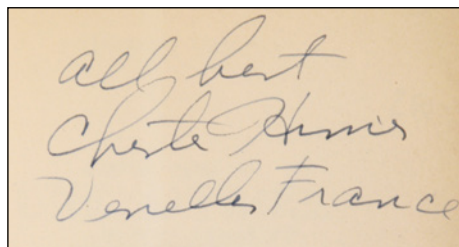 All best
Chester Himes
Venelles France